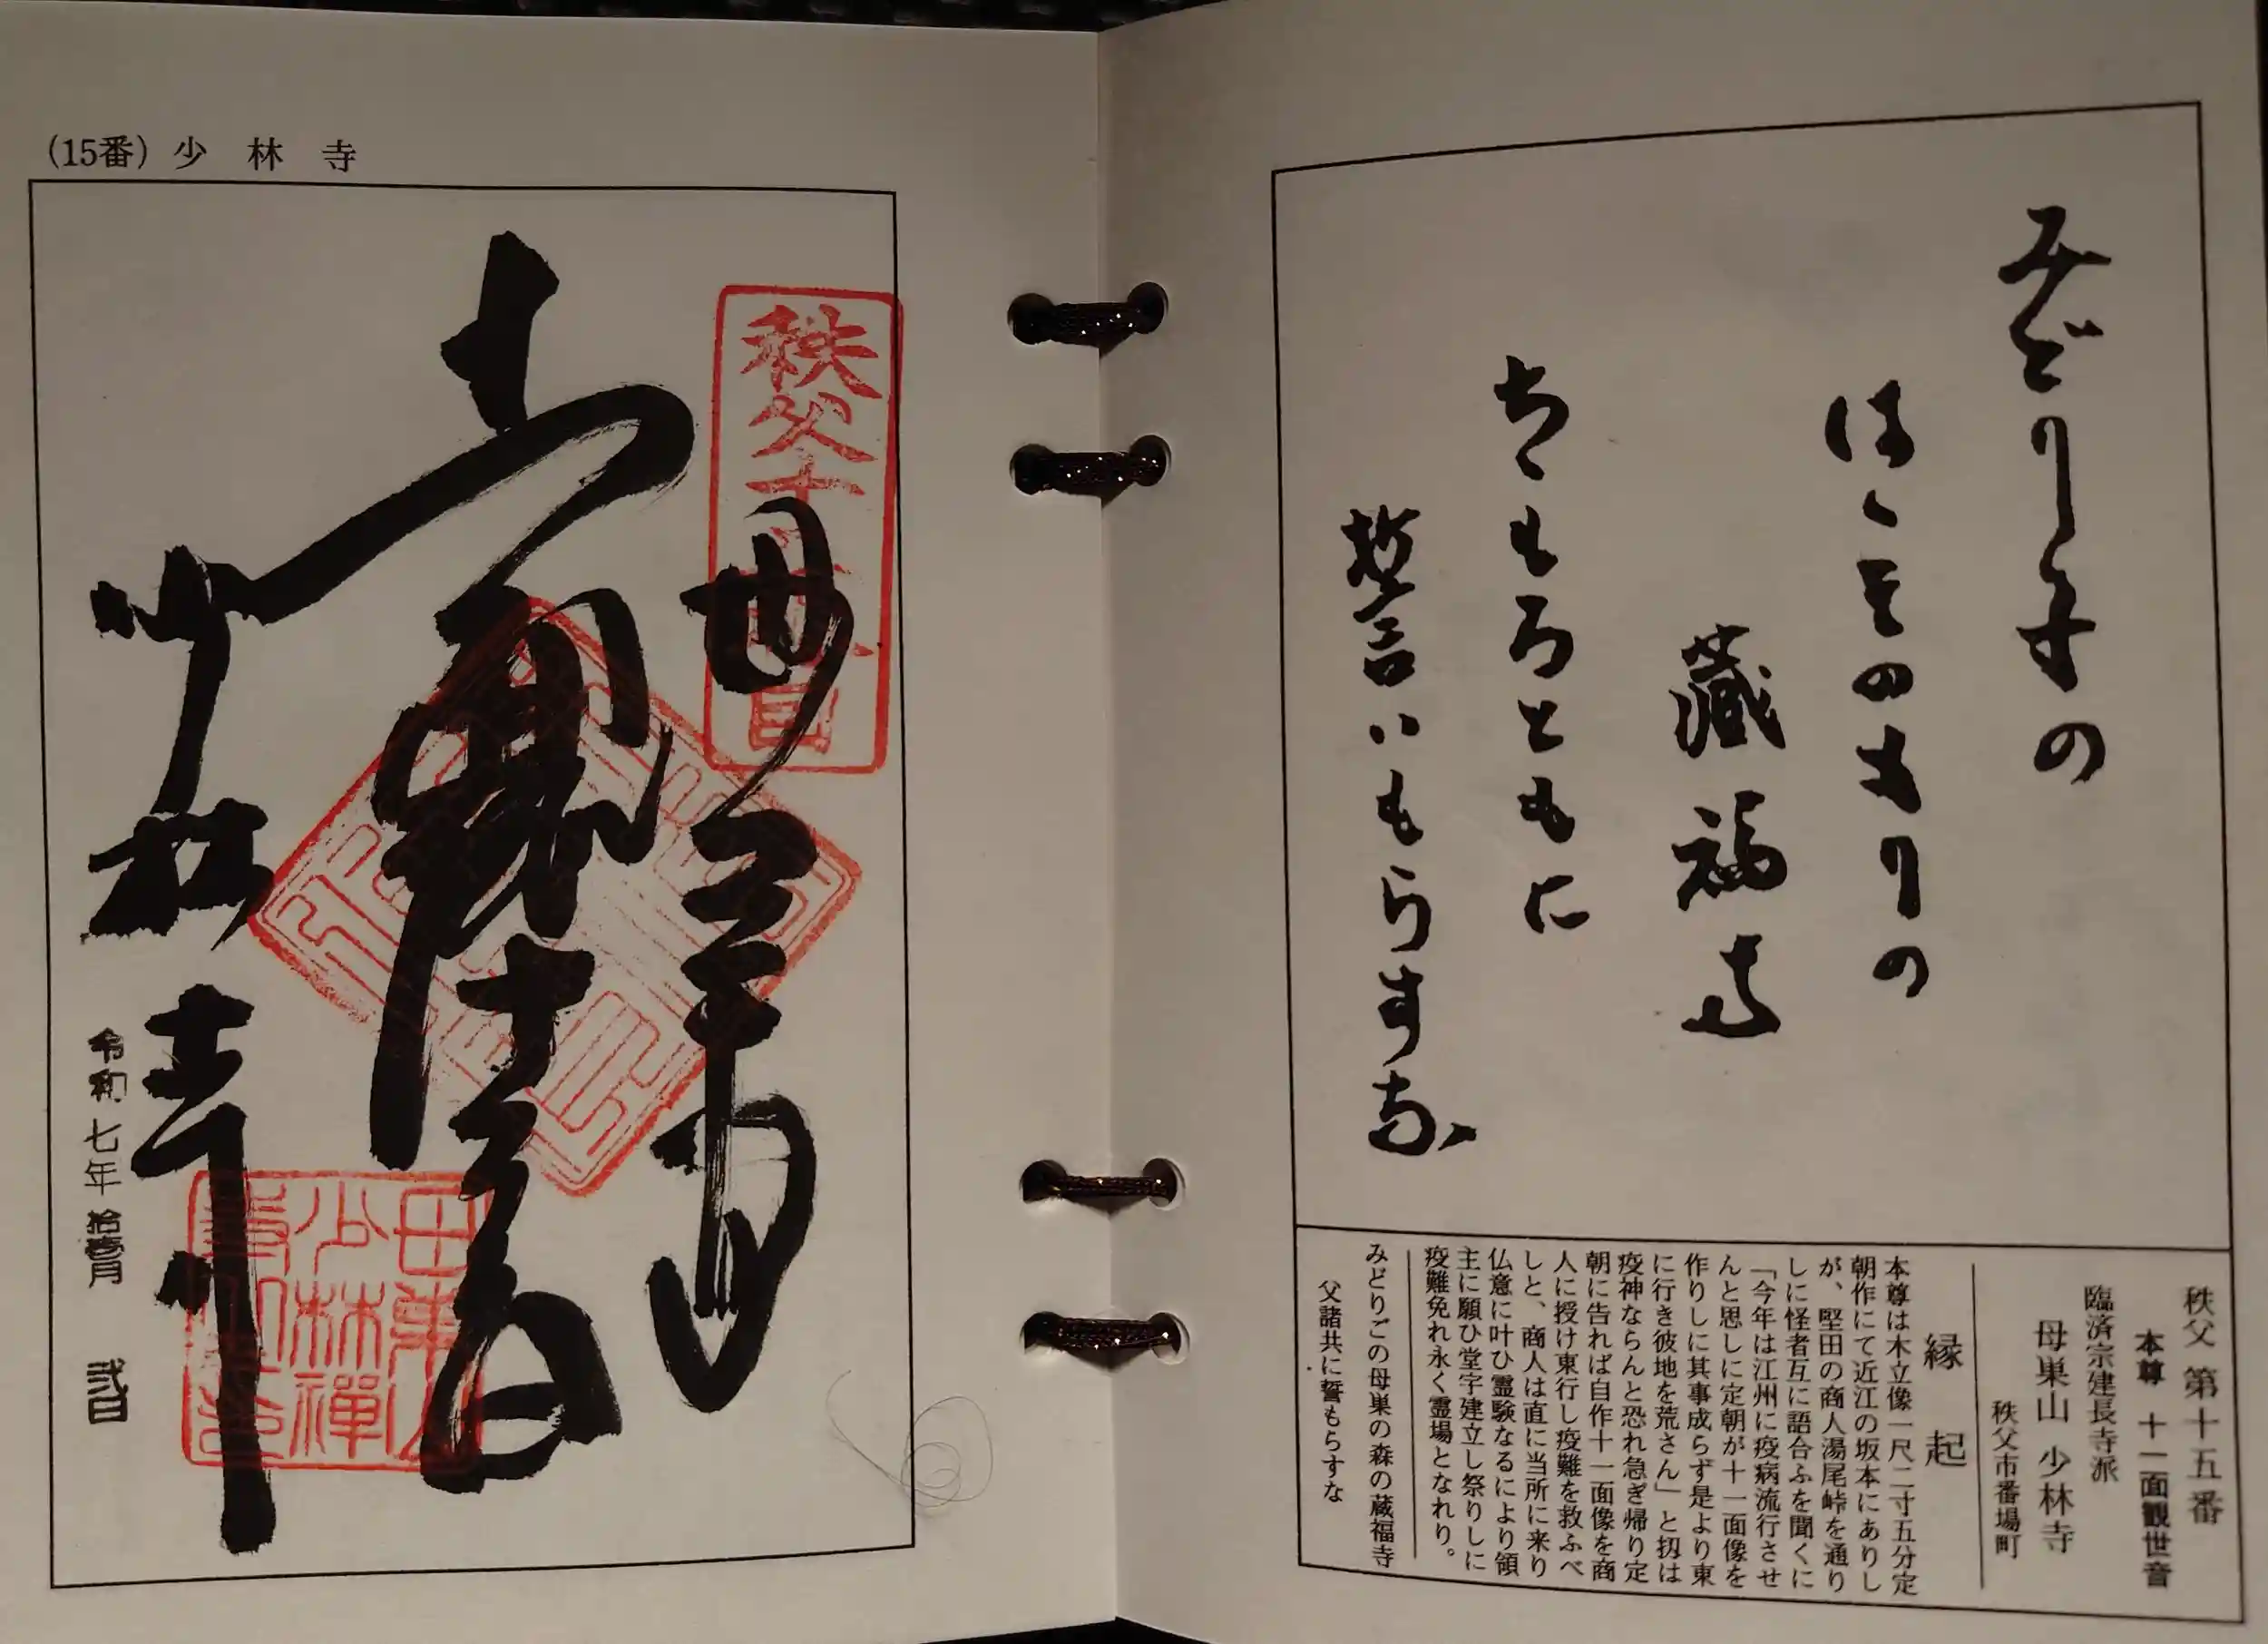 みどり子の
はゝその森の
藏福寺
ちゝもろともに
誓いもらすな
秩父 第十五番
本尊 十一面観世音
臨済宗建長寺派
母巣山 少林寺
秩父市番場町
縁起
本尊は木立像一尺二寸五分定
朝作にて近江の坂本にありし
が、堅田の商人湯尾峠を通り
しに怪者互に語合ふを聞くに
「今年は江州に疫病流行させ
んと思しに定朝が十一面像を
作りしに其事成らず是より東
に行き彼地を荒さん」と扨は
疫神ならんと恐れ急ぎ帰り定
朝に告れば自作十一面像を商
人に授け東行し疫難を救ふべ
しと、商人は直に当所に来り
仏意に叶ひ霊験なるにより領
主に願ひ堂宇建立し祭りしに
疫難免れ永く霊場となれり。
みどりごの母巣の森の蔵福寺
父諸共に誓もらすな
(15番) 少林寺
秩父十五番
母巣山
少林寺
令和七年 拾壹月 弐日